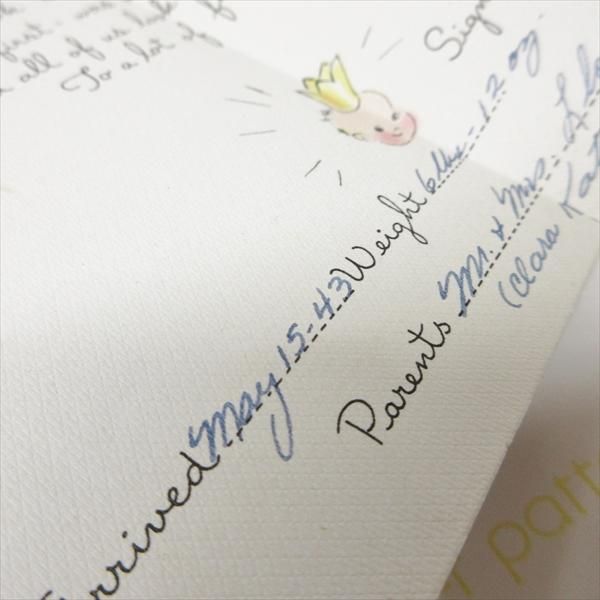 first. was
all of us
To a lot of
Sign
Arrived May 15-43 Weight 6 lbs - 12 oz.
Parents Mr. & Mrs.
(Clara
patt